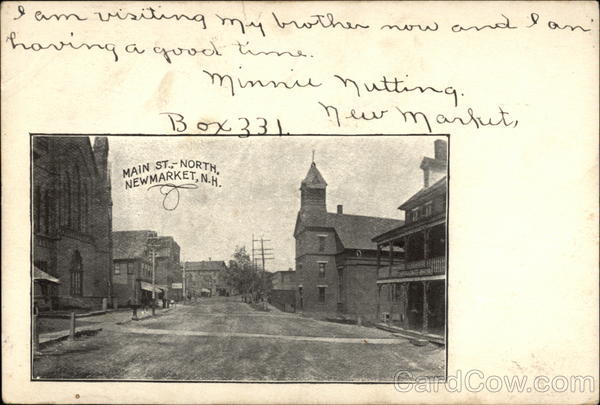 I am visiting my brother now and I am
having a good time.
Minnie Nutting.
New Market,
Box 331.
MAIN ST., NORTH,
NEWMARKET, N.H.
CardCow.com